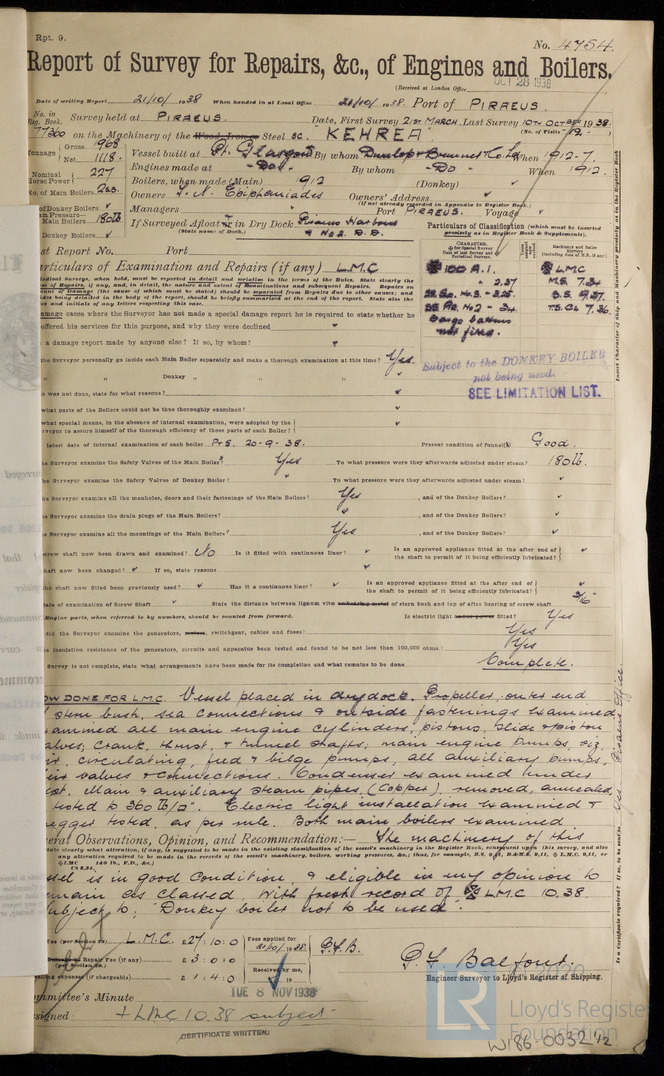 Rpt. 9.
No. 4754.
Report of Survey for Repairs, &c., of Engines and Boilers.
(Received at London Office OCT 28 1938
Date of writing Report 21/10/1938 When handed in at Local Office 21/10/1938. Port of PIRAEUS.
No. in Reg. Book. Survey held at PIRAEUS. Date, First Survey 21ST MARCH. Last Survey 10TH OCTBER 1938.
77360 on the Machinery of the Wood, Iron or Steel SC. "KEHREA" (No. of Visits 12.-)
Tonnage Gross 1968 Net 1118.
Vessel built at Pt. Glasgow By whom Dunlop Bremner Co. Ld When 1912-7.
Nominal Horse Power 227
Engines made at -Do- By whom -Do- When 1912
No. of Main Boilers 2
Boilers, when made (Main) 1912 (Donkey) ✓
Owners Epiphaniades Owners' Address
(If not already recorded in Appendix to Register Book.)
No. of Donkey Boilers ✓
Managers Port PIRAEUS. Voyage ✓
Steam Pressure— Main Boilers 180 lb
Donkey Boilers ✓
If Surveyed Afloat or in Dry Dock Piraeus Harbour
(State name of Dock.) & No 2. D.D.
Particulars of Classification (which must be inserted precisely as in Register Book & Supplements).
Last Report No. Port
Particulars of Examination and Repairs (if any) L.M.C
100 A.1. LMC
2.37 M.S. 7.34
B.S. 9.37.
T.S. CL 7.36.
Cargo battens
not fitted.
Subject to the DONKEY BOILER
not being used.
SEE LIMITATION LIST.
damage cases where the Surveyor has not made a special damage report he is required to state whether he
offered his services for this purpose, and why they were declined
a damage report made by anyone else? If so, by whom?
the Surveyor personally go inside each Main Boiler separately and make a thorough examination at this time? Yes.
" Donkey " " " " " ✓
was not done, state for what reasons? ✓
what parts of the Boilers could not be thus thoroughly examined? ✓
what special means, in the absence of internal examination, were adopted by the
Surveyor to assure himself of the thorough efficiency of those parts of each Boiler? ✓
latest date of internal examination of each boiler P & S. 20-9-38. Present condition of funnel(s) Good.
the Surveyor examine the Safety Valves of the Main Boiler? Yes To what pressure were they afterwards adjusted under steam? 180 lb.
the Surveyor examine the Safety Valves of Donkey Boiler? ✓ To what pressure were they afterwards adjusted under steam? ✓
the Surveyor examine all the manholes, doors and their fastenings of the Main Boilers? Yes , and of the Donkey Boilers? ✓
the Surveyor examine the drain plugs of the Main Boilers? ✓ , and of the Donkey Boilers? ✓
the Surveyor examine all the mountings of the Main Boilers? Yes , and of the Donkey Boilers? ✓
screw shaft now been drawn and examined? No Is it fitted with continuous liner? ✓ Is an approved appliance fitted at the after end of the shaft to permit of it being efficiently lubricated? ✓
shaft now been changed? ✓ If so, state reasons ✓
the shaft now fitted been previously used? ✓ Has it a continuous liner? ✓ Is an approved appliance fitted at the after end of the shaft to permit of it being efficiently lubricated? ✓
date of examination of Screw Shaft ✓ State the distance between lignum vitæ or bearing metal of stern bush and top of after bearing of screw shaft 3/16"
Engine parts, when referred to by numbers, should be counted from forward. Is electric light and/or power fitted? Yes
did the Surveyor examine the generators, motors, switchgear, cables and fuses? Yes
the insulation resistance of the generators, circuits and apparatus been tested and found to be not less than 100,000 ohms? Yes
Survey is not complete, state what arrangements have been made for its completion and what remains to be done. Complete.
NOW DONE FOR L.M.C. Vessel placed in drydock. Propeller, outer end
stern bush, sea connections & outside fastenings examined
examined all main engine cylinders, pistons, slide & piston
valves, crank, thrust, & tunnel shafts; main engine pumps, viz.
air, circulating, feed & bilge pumps, all auxiliary pumps,
their valves & connections. Condenser examined under
test. Main & auxiliary steam pipes, (copper), removed, annealed,
tested to 360 lb/□". Electric light installation examined &
megger tested, as per rule. Both main boilers examined
General Observations, Opinion, and Recommendation:— The machinery of this
vessel is in good condition, & eligible in my opinion to
remain as classed with fresh record of LMC 10.38.
subject to; "Donkey boiler not to be used".
Fee (per Section 29) L.M.C. £27:10:0 Fees applied for 21/10/1938. G.F.B.
Damage or Repair Fee (if any) £3:0:0
(per Section 29.)
Travelling expenses (if chargeable) £1:4:0 Received by me,
G. F. Balfour.
Engineer Surveyor to Lloyd's Register of Shipping.
Committee's Minute TUE 8 NOV 1938
Assigned + LMC 10.38 subject
CERTIFICATE WRITTEN.
© 2020
LR
Lloyd's Register
Foundation
W186-0032 1/2